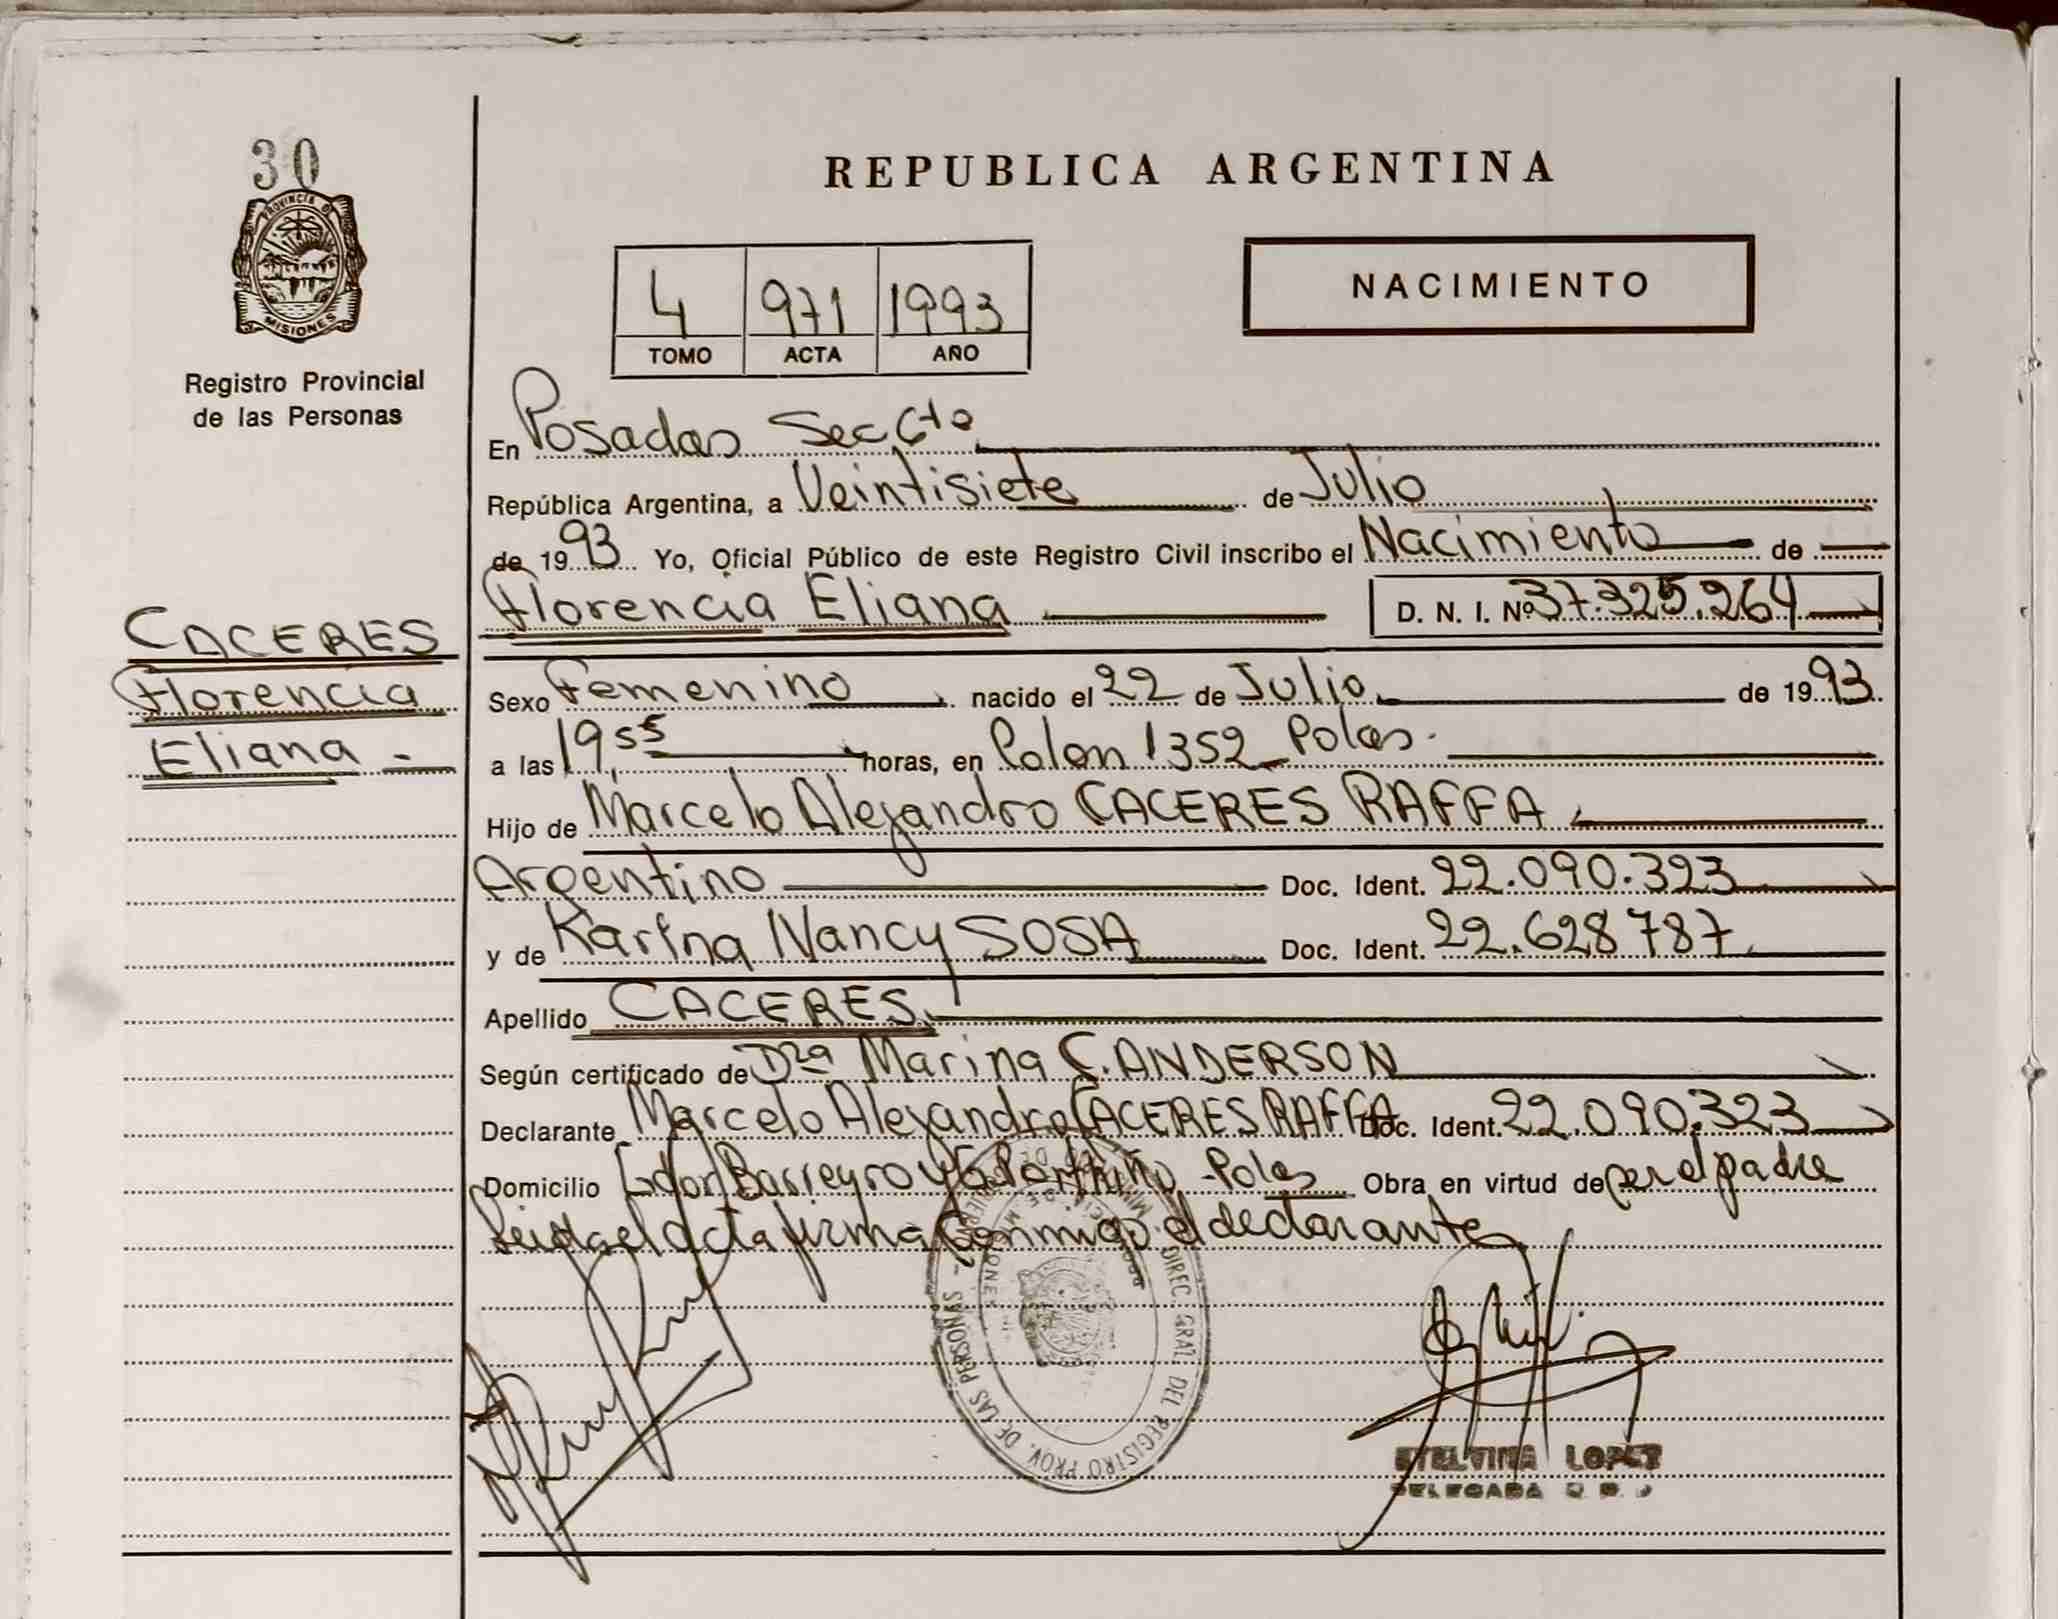 30
PROVINCIA DE
MISIONES
Registro Provincial
de las Personas
REPUBLICA ARGENTINA
4 971 1993
TOMO ACTA AÑO
NACIMIENTO
En Posadas Sec 6ta
República Argentina, a Veintisiete de Julio
de 1993 Yo, Oficial Público de este Registro Civil inscribo el Nacimiento de
Florencia Eliana D. N. I. Nº 37.325.264
CACERES
Florencia
Eliana -
Sexo Femenino nacido el 22 de Julio de 1993
a las 19,55 horas, en Colon 1352 Pdas.
Hijo de Marcelo Alejandro CACERES RAFFA
Argentino Doc. Ident. 22.090.323
y de Karina Nancy SOSA Doc. Ident. 22.628.787
Apellido CACERES
Según certificado de Dra Marina C. ANDERSON
Declarante Marcelo Alejandro CACERES RAFFA Doc. Ident. 22.090.323
Domicilio Barreyro y Pdas Obra en virtud de ser el padre
Leida el acta firma conmigo el declarante
DIREC. GRAL. DEL REGISTRO PROV. DE LAS PERSONAS
ETELVINA LOPEZ
DELEGADA